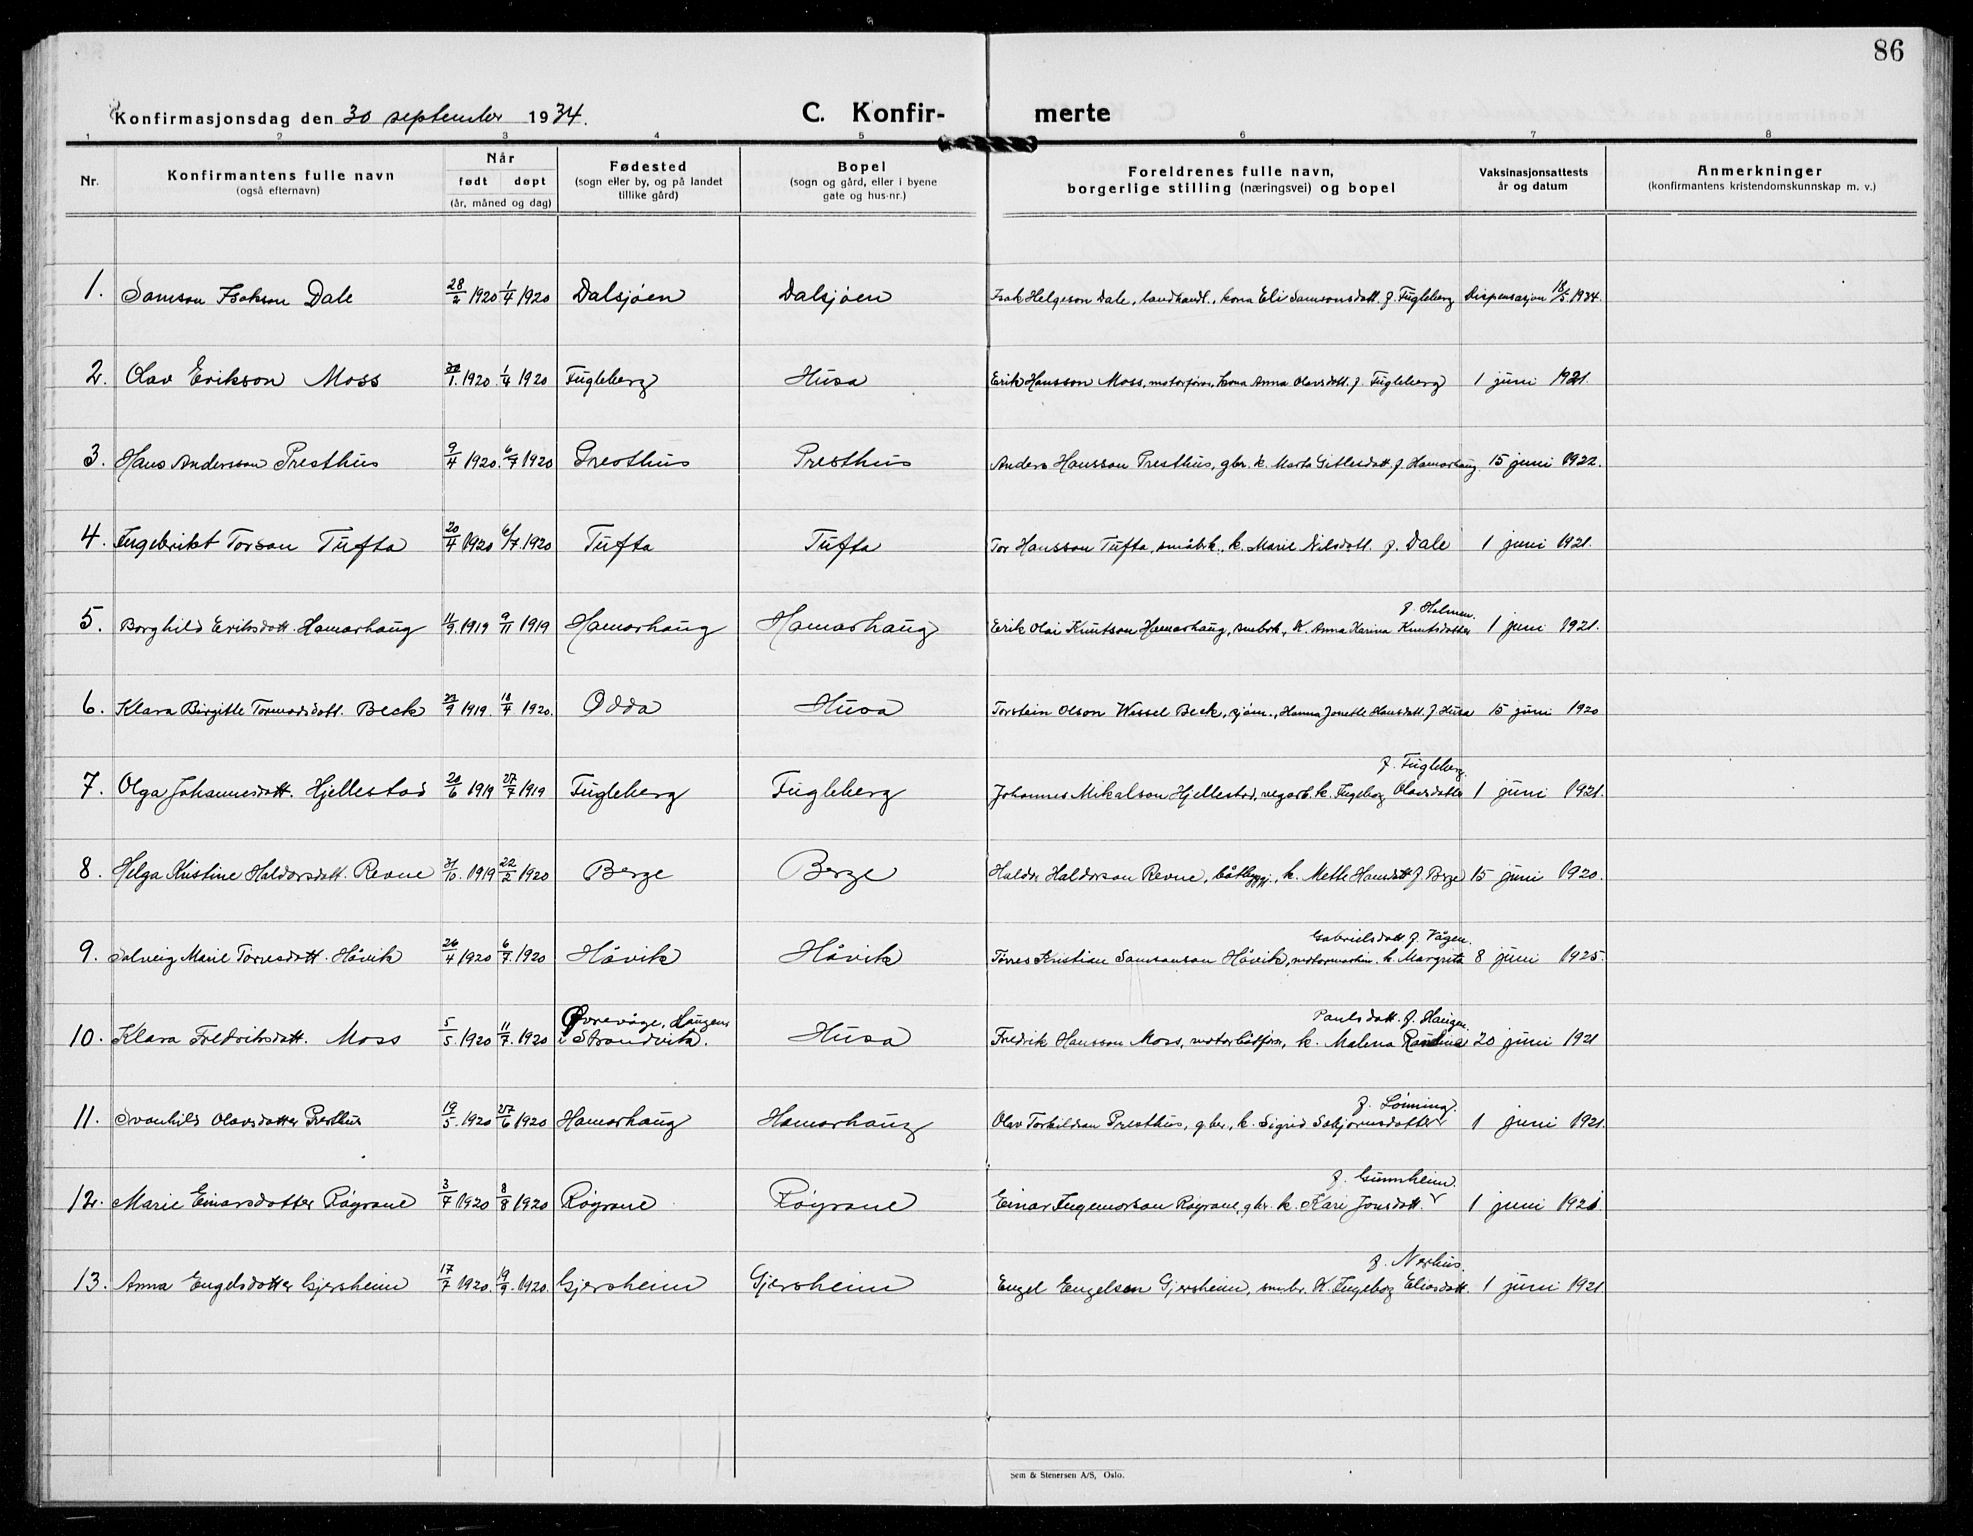 86
Konfirmasjonsdag den 30 september 1934.
C. Konfir- merte
1 2 3 4 5 6 7 8
Nr.
Konfirmantens fulle navn
(også efternavn)
Når
født døpt
(år, måned og dag)
Fødested
(sogn eller by, og på landet
tillike gård)
Bopel
(sogn og gård, eller i byene
gate og hus-nr.)
Foreldrenes fulle navn,
borgerlige stilling (næringsvei) og bopel
Vaksinasjonsattests
år og datum
Anmerkninger
(konfirmantens kristendomskunnskap m. v.)
1. Samson Isakson Dale 28/2 1920 1/4 1920 Dalsjøen Dalsjøen Isak Helgeson Dale, landhandl., kona Eli Samsonsdatt. f. Fugleberg Dispensasjon 18/5 1934.
2. Olav Erikson Moss /1. 1920. 1/4 1920 Fugleberg Husa Erik Hansson Moss, motorfører, kona Anna Olavsdatt. f. Fugleberg 1 juni 1921.
3. Hans Andersson Presthus 9/4 1920. 6/7 1920 Presthus Presthus Anders Hansson Presthus, gbr. k. Marta Gitlesdatt. f. Hamarhaug. 15 juni 1922.
4. Ingebrikt Torson Tufta 20/4 1920 6/7. 1920 Tufta Tufta Tor Hansson Tufta, småbrk., k. Marie Nilsdatt. f. Dale 1 juni 1921.
f. Holmen.
5. Borghild Eriksdatt. Hamarhaug 11/9. 1919 9/11 1919 Hamarhaug Hamarhaug Erik Olai Knutson Hamarhaug, smbrk., k. Anna Karina Knutsdotter 1 juni 1921.
6. Klara Birgitte Tormodsdatt. Beck /9 1919. 18/4 1920. Odda Husa Torstein Olson Wessel Beck, sjøm., Hanna Jonette Hansdatt. f. Husa 15 juni 1920
f. Fugleberg.
7. Olga Johannesdatt. Hjellestad 20/6 1919 27/7 1919 Fugleberg Fugleberg Johannes Mikalson Hjellestad, vegarb. k. Ingeborg Olavsdatter 1 juni 1921.
8. Helga Kristine Haldorsdatt. Revne 31/10. 1919 22/2 1920 Berge Berge Haldor Haldorson Revne, båtbyggj., k. Mette Hansdatt f. Berge 15 juni 1920.
Gabrielsdatt. f. Vågen.
9. Solveig Marie Torresdatt. Håvik 26/4 1920 6/7. 1920 Håvik Håvik Tørres Kristian Samsonson Håvik, motormaskin. k. Margreta 8 juni 1925.
Øvrevåge, Haugens Paulsdatt. f. Haugen.
10. Klara Fredriksdatt. Moss 5/5. 1920 11/7. 1920 i Strandvik. Husa Fredrik Hansson Moss, motorbåtfør., k. Malena 20 juni 1921
f. Lønning.
11. Svanhild Olavsdatter Presthus 19/5. 1920 27/6 1920 Hamarhaug Hamarhaug Olav Torkildson Presthus, gbr., k. Sigrid Sebjørnsdotter 1 juni 1921.
f. Gunnheim.
12. Marie Einarsdotter Røyrane 3/7 1920 8/8 1920 Røyrane Røyrane Einar Ingemorson Røyrane, gbr. k. Kari Jonsdatt. 1 juni 1921
f. Nerhus.
13. Anna Engelsdotter Gjersheim 17/7 1920. 19/9. 1920. Gjersheim Gjersheim Engel Engelsen Gjersheim, smbr. K. Ingeborg Eliasdatt. 1 juni 1921.
Sem & Stenersen A/S, Oslo.